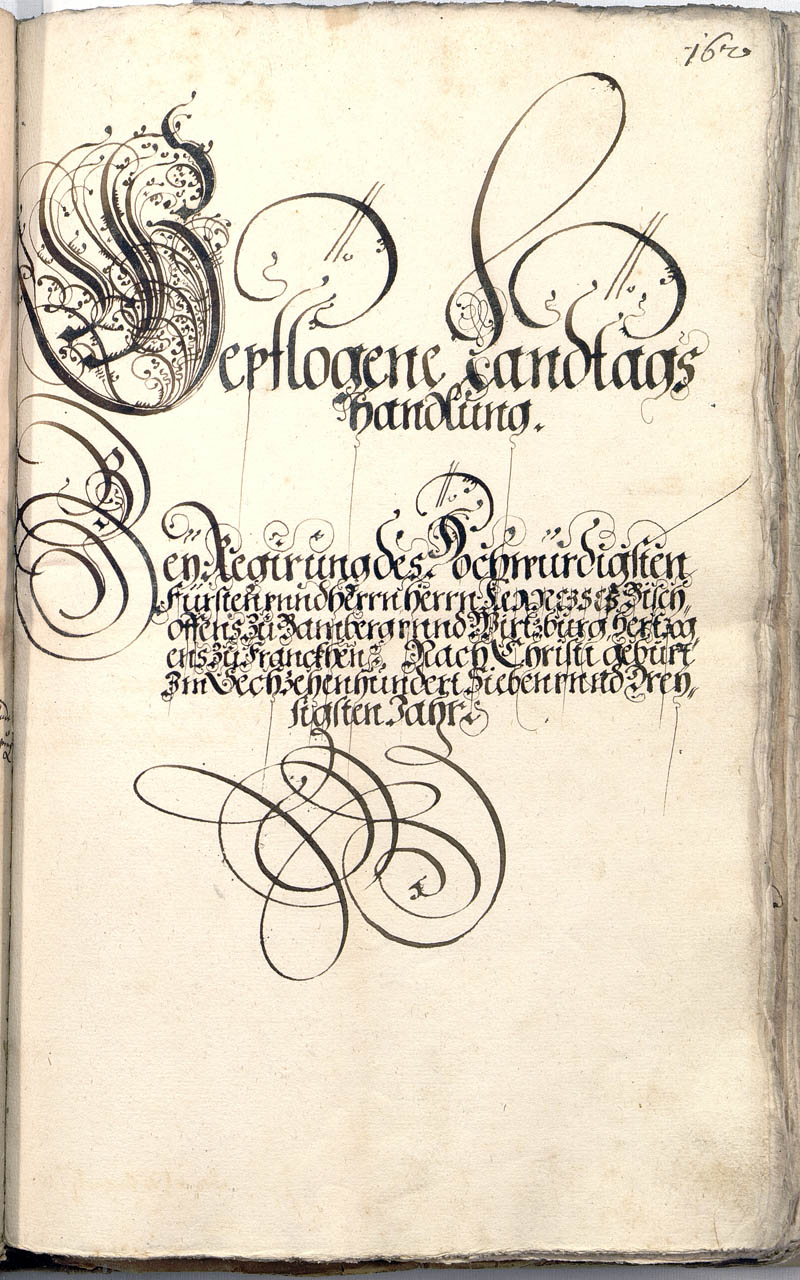 Gepflogene Landtags
Handlung.
Bey Regirung des Hochwürdigsten
Fürsten vnnd Herrn Herrn Bisch-
offens zu Bamberg vnnd Wirtzburg, Hertzog
ens zu Franckhen, Nach Christi geburt
Im Sechzehenhundert Sieben vnnd Drey,,
sigsten Jahr